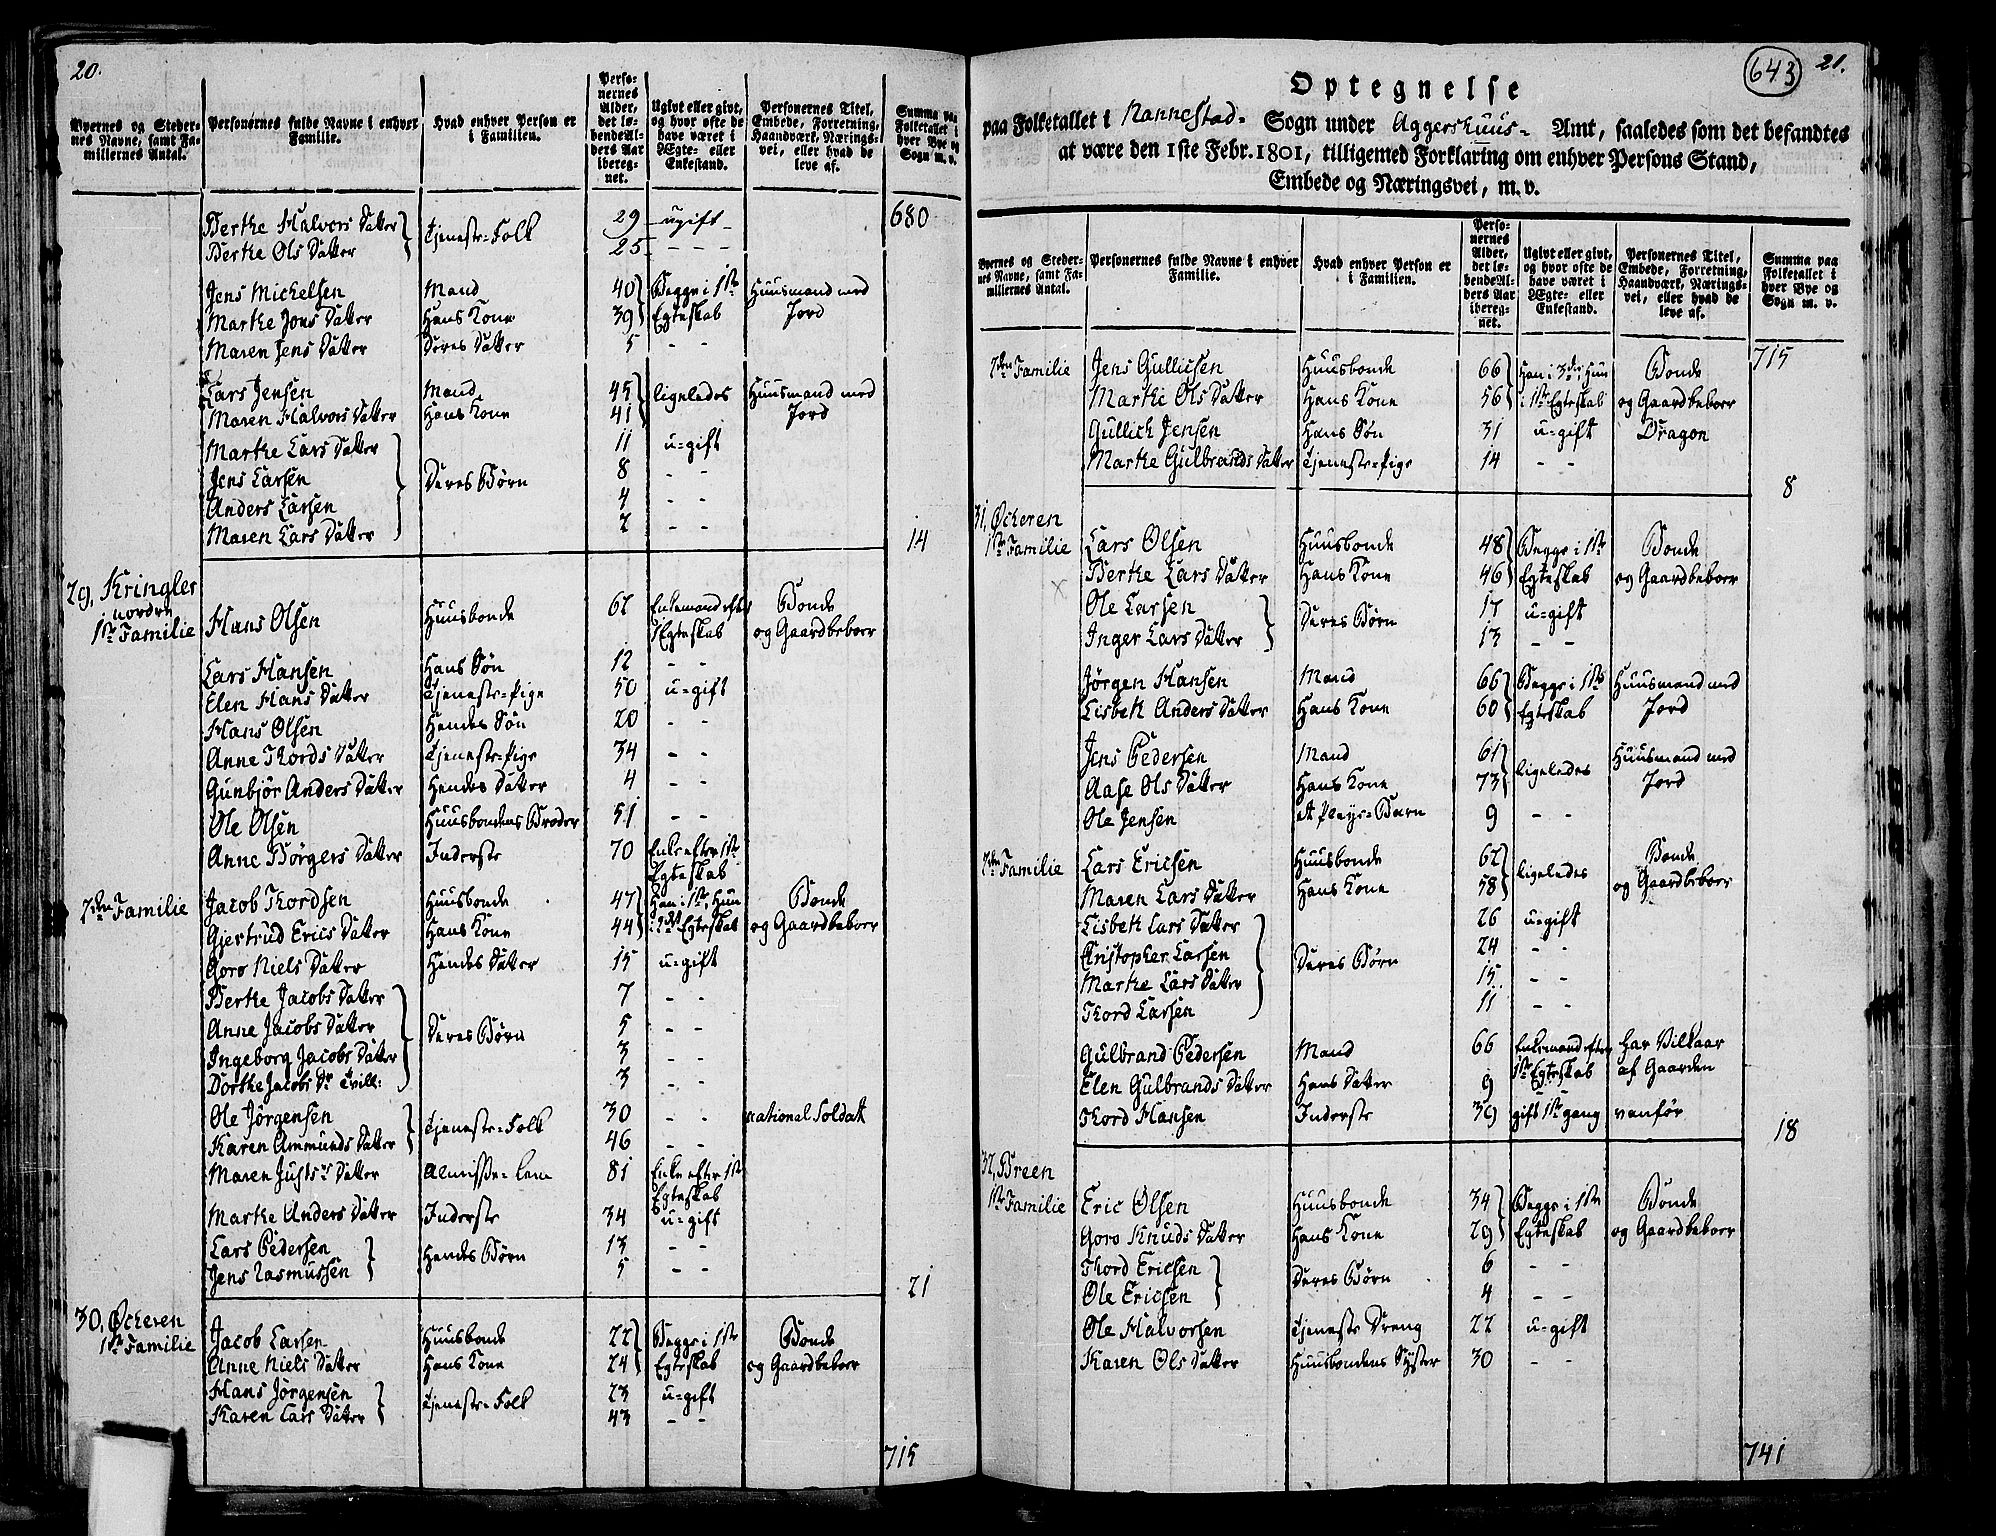 20.
Byernes og Steder-
nes Navne, samt Fa-
millernes Antal.
Personernes fulde Navne i enhver
Familie.
Hvad enhver Person er
i Familien.
Perso-
nernes
Alder,
det lø-
bende Al-
ders Aar
ibereg-
net.
Ugivt eller givt,
og hvor ofte de
have været i
Ægte- eller
Enkestand.
Personernes Titel,
Embede, Forretning,
Haandværk, Nærings-
vei, eller hvad de
leve af.
Summa paa
Folketallet i
hver Bye og
Sogn m. v.
Berthe Halvors Datter } Tjeneste-Folk 29 ugift 680
Berthe Ols Datter 25 - - -
Jens Michelsen Mand 40 } Begge i 1ste Huusmand med
Marthe Jons Datter Hans Kone 39 } Egteskab Jord
Maren Jens Datter Deres Datter 5 - -
Lars Jensen Mand 45 } ligeledes Huusmand med
Maren Halvors Datter Hans Kone 41 } Jord
Marthe Lars Datter 11 u-gift
Jens Larsen } Deres Børn 8 - -
Anders Larsen 4 - -
Maren Lars Datter 2 - - 14
29, Kringler
norden
1ste Familie Hans Olsen Huusbonde 62 Enkemand efter Bonde
1 Egteskab og Gaardbeboer
Lars Hansen Hans Søn 12 - -
Elen Hans Datter Tjeneste-Pige 50 u-gift
Hans Olsen Hendes Søn 20 - -
Anne Thords Datter Tjeneste-Pige 34 - -
Gunbjør Anders Datter Hendes Datter 4 - -
Ole Olsen Huusbondens Broder 51 - -
Anne Børgers Datter Inderste 70 Enke efter 1ste
Egteskab
2den Familie Jacob Thordsen Huusbonde 47 } Han i 1ste, Hun Bonde
Gjertrud Erics Datter Hans Kone 44 } i 2det Egteskab og Gaardbeboer
Goro Niels Datter Hendes Datter 15 u-gift
Berthe Jacobs Datter 7 - -
Anne Jacobs Datter } Deres Børn 5 - -
Ingeborg Jacobs Datter 3 - -
Dorthe Jacobs Dr Tvill: 3 - -
Ole Jørgensen } Tjeneste-Folk 30 - - national Soldat
Karen Ammunds Datter 46 - -
Maren Justs Datter Almisse-Lem 81 Enke efter 1ste
Egteskab
Marthe Anders Datter Inderste 34 u-gift
Lars Pedersen } Hendes Børn 13 - -
Jens Rasmussen 5 - - 21
30, Ocheren
1ste Familie Jacob Larsen Huusbonde 22 } Begge i 1ste Bonde
Anne Niels Datter Hans Kone 24 } Egteskab og Gaardbeboer
Hans Jørgensen } Tjeneste-Folk 23 u-gift
Karen Lars Datter 43 - -
715
643 21.
Optegnelse
paa Folketallet i Nannestad- Sogn under Aggershuus- Amt, saaledes som det befandtes
at være den 1ste Febr. 1801, tilligemed Forklaring om enhver Persons Stand,
Embede og Næringsvei, m. v.
Byernes og Steder-
nes Navne, samt Fa-
millernes Antal.
Personernes fulde Navne i enhver
Familie.
Hvad enhver Person er
i Familien.
Perso-
nernes
Alder,
det lø-
bende Al-
ders Aar
ibereg-
net.
Ugivt eller givt,
og hvor ofte de
have været i
Ægte- eller
Enkestand.
Personernes Titel,
Embede, Forretning,
Haandværk, Nærings-
vei, eller hvad de
leve af.
Summa paa
Folketallet i
hver Bye og
Sogn m. v.
2den Familie Jens Gullicsen Huusbonde 66 } Han i 3die, Hun Bonde 715
Marthe Ols Datter Hans Kone 56 } i 1ste Egteskab og Gaardbeboer
Gullich Jensen Hans Søn 31 u-gift Dragon
Marthe Gulbrands Datter Tjeneste-Pige 14 - -
8
31, Ocheren
1ste Familie Lars Olsen Huusbonde 48 } Begge i 1ste Bonde
Berthe Lars Datter Hans Kone 46 } Egteskab og Gaardbeboer
Ole Larsen } Deres Børn 17 u-gift
Inger Lars Datter 13 - -
Jørgen Hansen Mand 66 } Begge i 1ste Huusmand med
Lisbeth Anders Datter Hans Kone 60 } Egteskab Jord
Jens Pedersen Mand 61 } ligeledes Huusmand med
Aase Ols Datter Hans Kone 73 } Jord
Ole Jensen et Pleye-Barn 9 - -
2den Familie Lars Ericsen Huusbonde 62 } ligeledes Bonde
Maren Lars Datter Hans Kone 58 } og Gaardbeboer
Lisbeth Lars Datter 26 u-gift
Christopher Larsen } Deres Børn 24 - -
Marthe Lars Datter 15 - -
Thord Larsen 11 - -
Gulbrand Pedersen Mand 66 Enkemand efter har Vilkaar
1ste Egteskab af Gaarden
Elen Gulbrands Datter Hans Datter 9
Thord Hansen Inderste 39 gift 1ste gang vanfør
18
32, Breen
1ste Familie Eric Olsen Huusbonde 34 } Begge i 1ste Bonde
Goro Knuds Datter Hans Kone 29 } Egteskab og Gaardbeboer
Thord Ericsen } Deres Børn 6 - -
Ole Ericsen 4 - -
Ole Halvorsen Tjeneste Dreng 22 u-gift
Karen Ols Datter Huusbondens Syster 30 - -
741